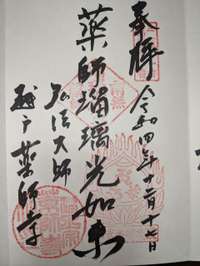 奉拝
令和四年十二月十七日
薬師瑠璃光如来
弘法大師
越戸薬師寺